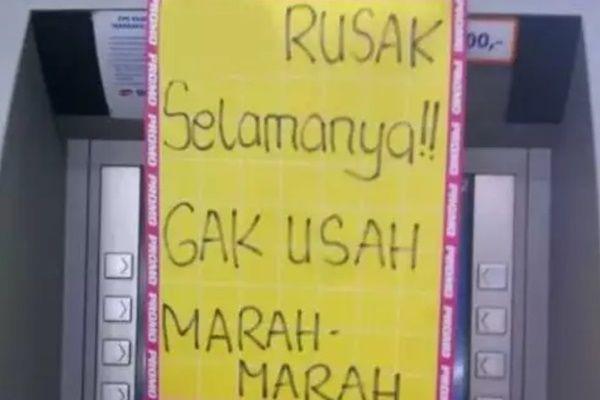 RUSAK
Selamanya!!
GAK USAH
MARAH-
MARAH
PROMO
PROMO
PROMO
PROMO
PROMO
PROMO
PROMO
PROMO
PROMO
PROMO
00,-